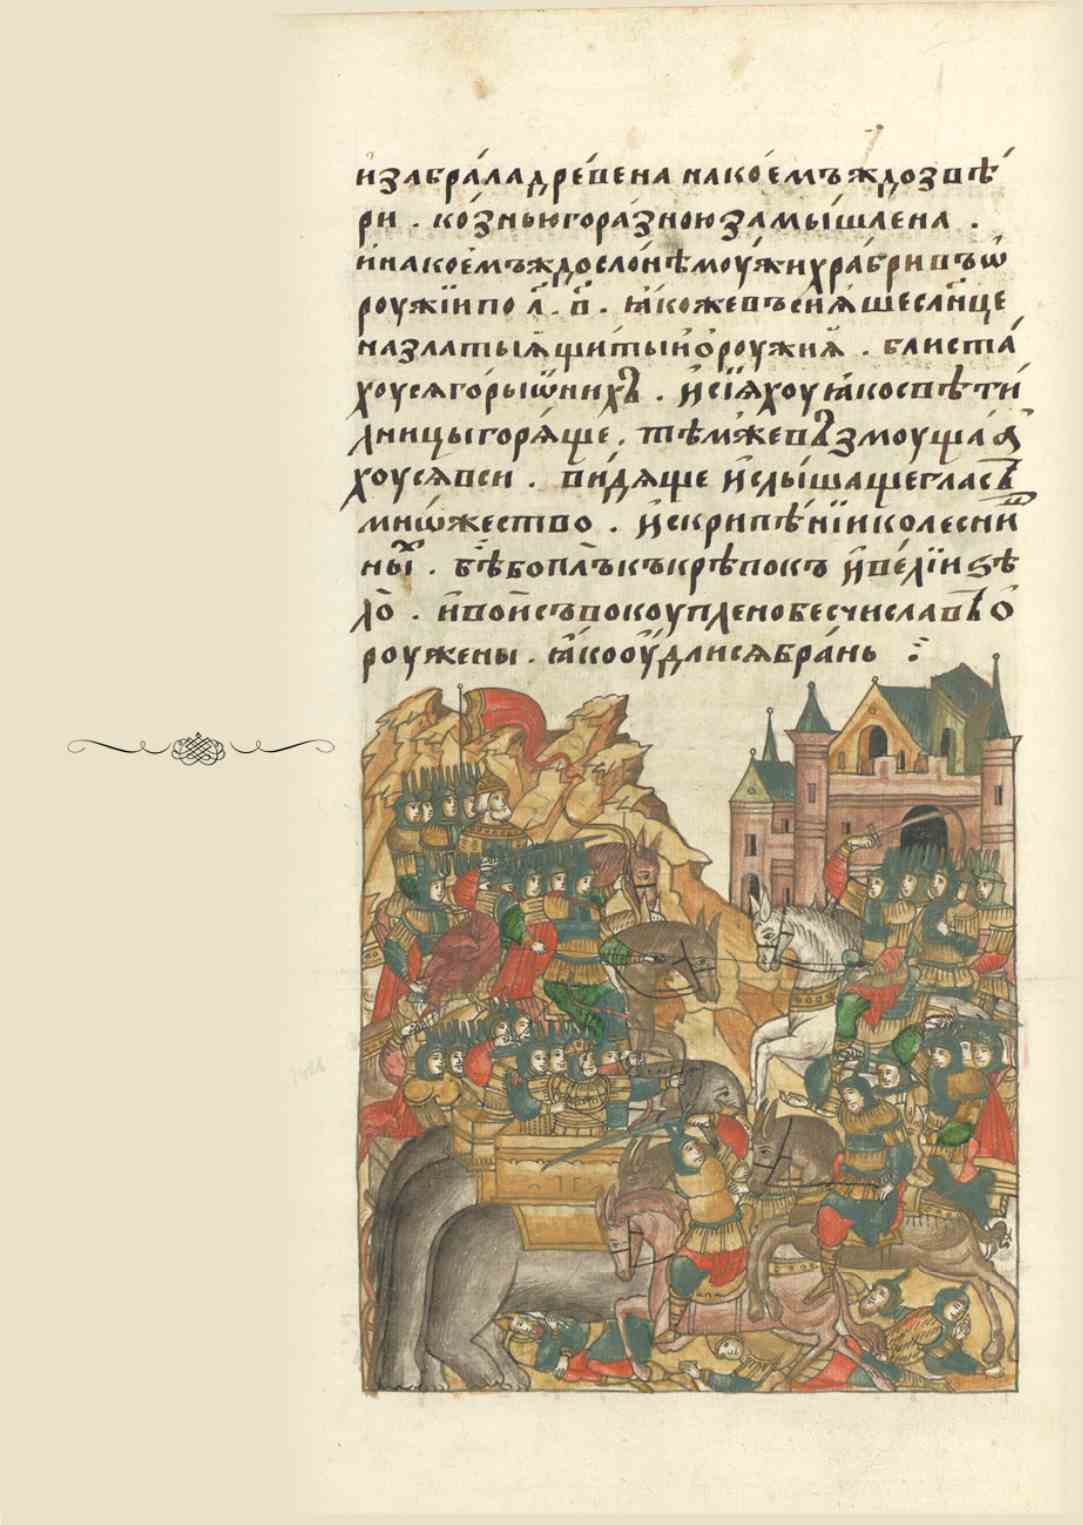 изабра́ла дре́вена на кое́мъждо звѣ́
ри . ко́знью гора́зною замы́шлена .
и҆ на кое́мъждо сло́нѣ моу́жи хра́бри въ ѡ
роужїи по л҃ . в҃ . ꙗ҆коже въсиѧ́ше сл҃нце
на златы́ѧ щиты́ и҆ ѻ҆роужиѧ . блиста́
хоусѧ го́ры ѿ них . и҆ сїѧ́хоу ꙗ҆ко свѣти́
лницы горѧ́ще . тѣ́мже възмоуща́
хоусѧ вси . ви́дѧще и҆ слы́шаще глас
мнѡ́жество . и҆ скрипѣ́нїи колесни
ны́х . бѣ́ бо плъкъ крѣ́покъ и҆ ве́лїи ѕѣ
ло̀ . и҆ вои съвокоупле́но бесчисла въ ѻ
роуже́ны . ꙗ҆ко оу҆дли́сѧ бра́нь ⁖